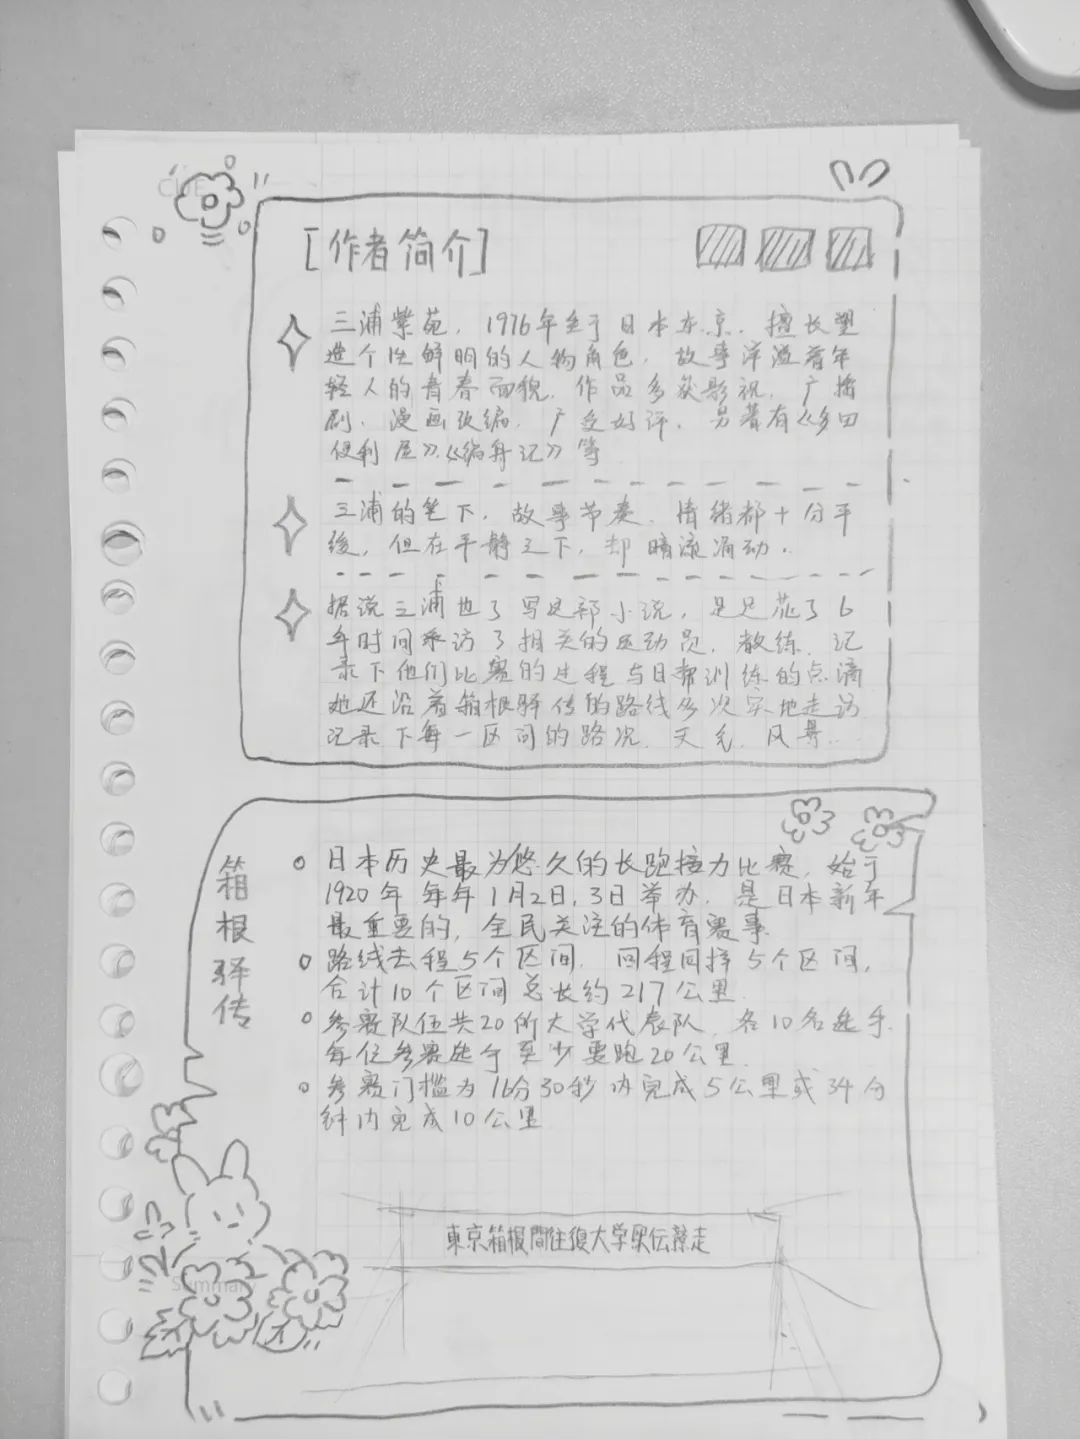 CUE
[作者简介]
三浦紫苑，1976年生于日本东京，擅长塑
造个性鲜明的人物角色，故事洋溢着年
轻人的青春面貌，作品多获影视，广播
剧，漫画改编，广受好评，另著有《多田
便利屋》《编舟记》等
三浦的笔下，故事节奏、情绪都十分平
缓，但在平静之下，却暗流涌动。
据说三浦也了写这部小说，足足花了6
年时间采访了相关的运动员，教练，记
录下他们比赛的过程与日常训练的点滴
她还沿着箱根驿传的路线多次实地走访
记录下每一区间的路况、天气、风景...
箱根驿传
日本历史最为悠久的长跑接力比赛，始于
1920年 每年1月2日,3日举办，是日本新年
最重要的，全民关注的体育赛事
路线去程5个区间，回程同样5个区间，
合计10个区间总长约217公里
参赛队伍共20所大学代表队，各10名选手
每位参赛选手至少要跑20公里
参赛门槛为16分30秒内完成5公里或34分
钟内完成10公里
東京箱根間往復大学駅伝競走
Summary